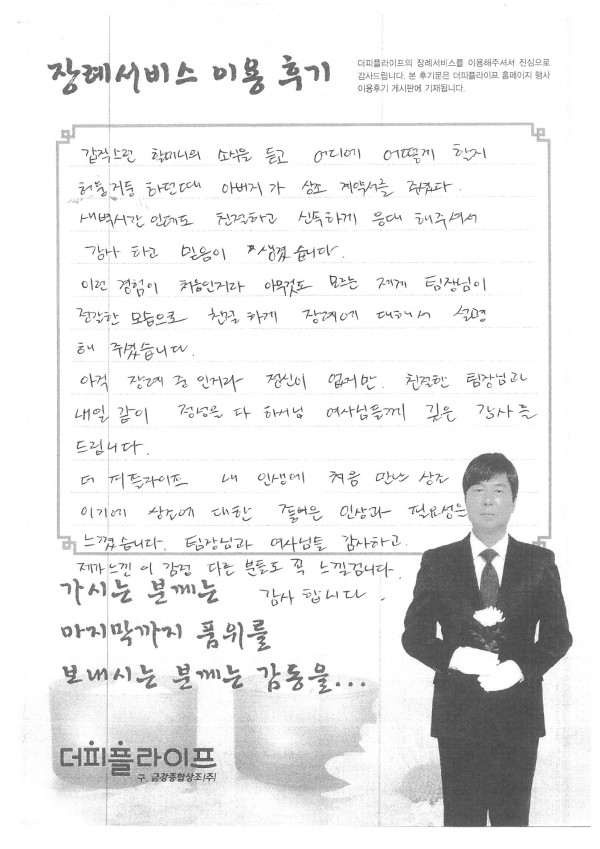 장례서비스 이용 후기
더피플라이프의 장례서비스를 이용해주셔서 진심으로
감사드립니다. 본 후기문은 더피플라이프 홈페이지 행사
이용후기 게시판에 기재됩니다.
갑작스런 할머니의 소식을 듣고 어디에 어떻게 할지
허둥거둥 하던때 아버지가 상조 계약서를 주셨다.
새벽시간 인데도 친절하고 신속하게 응대 해주셔서
감사 하고 믿음이 생겼습니다.
이런 경험이 처음인거라 아무것도 모르는 제게 팀장님이
친절하게 장례에 대해서 설명
해 주셨습니다.
아직 장례 중 인거라 정신이 없지만. 친절한 팀장님과
내일 같이 정성을 다 하셔님 여사님들께 깊은 감사를
드립니다.
더 피플라이프 내 인생에 처음 만난 상조
이기에 상조에 대한 좋은 인상과 필요성을
느꼈습니다. 팀장님과 여사님들 감사하고.
제가 느낀 이 감정 다른 분들도 꼭 느낄겁니다.
감사 합니다.
가시는 분께는
마지막까지 품위를
보내시는 분께는 감동을...
더피플라이프
구. 금강종합상조(주)